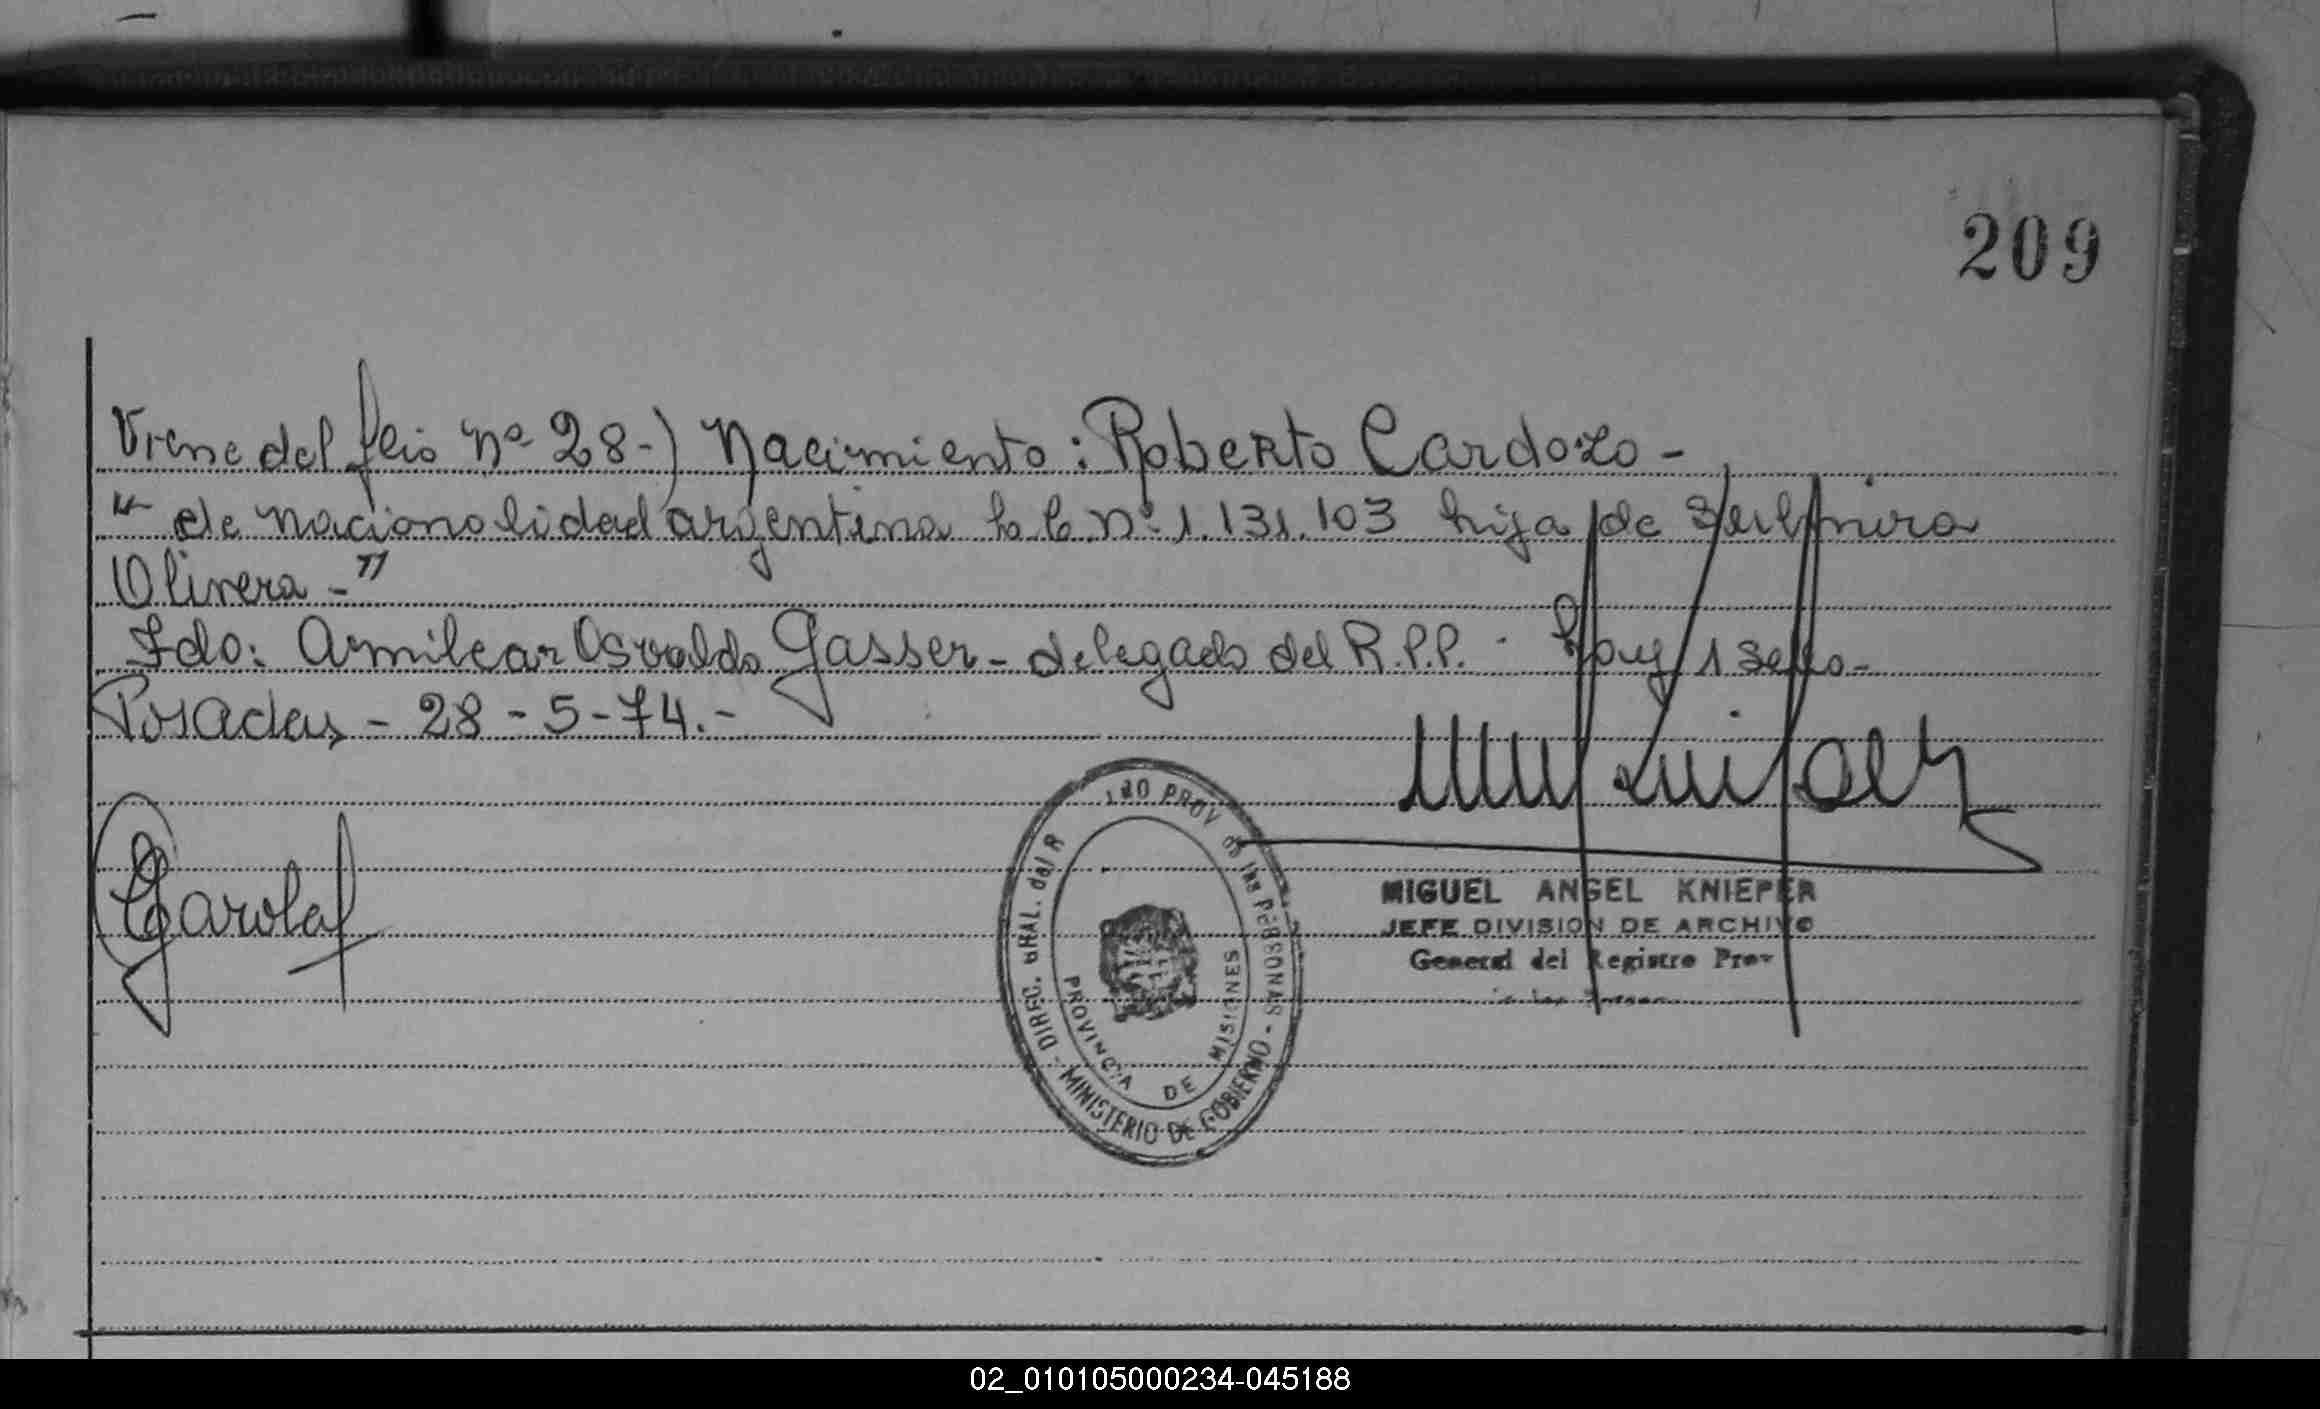 209
Viene del feio Nº 28-) Nacimiento: Roberto Cardozo -
"- de nacionalidad argentina L.C. Nº 1.131.103 hija de
Olivera -"
Fdo: Amilcar Osvaldo Gasser - delegado del R.P.P. - hay 1 sello-
Posadas - 28 - 5 - 74.-
MIGUEL ANGEL KNIEPER
JEFE DIVISION DE ARCHIVO
General del Registro Prov
DIREC. GRAL. del R TRO PROV de las PERSONAS - MINISTERIO DE GOBIERNO -
PROVINCIA DE MISIONES
02_010105000234-045188